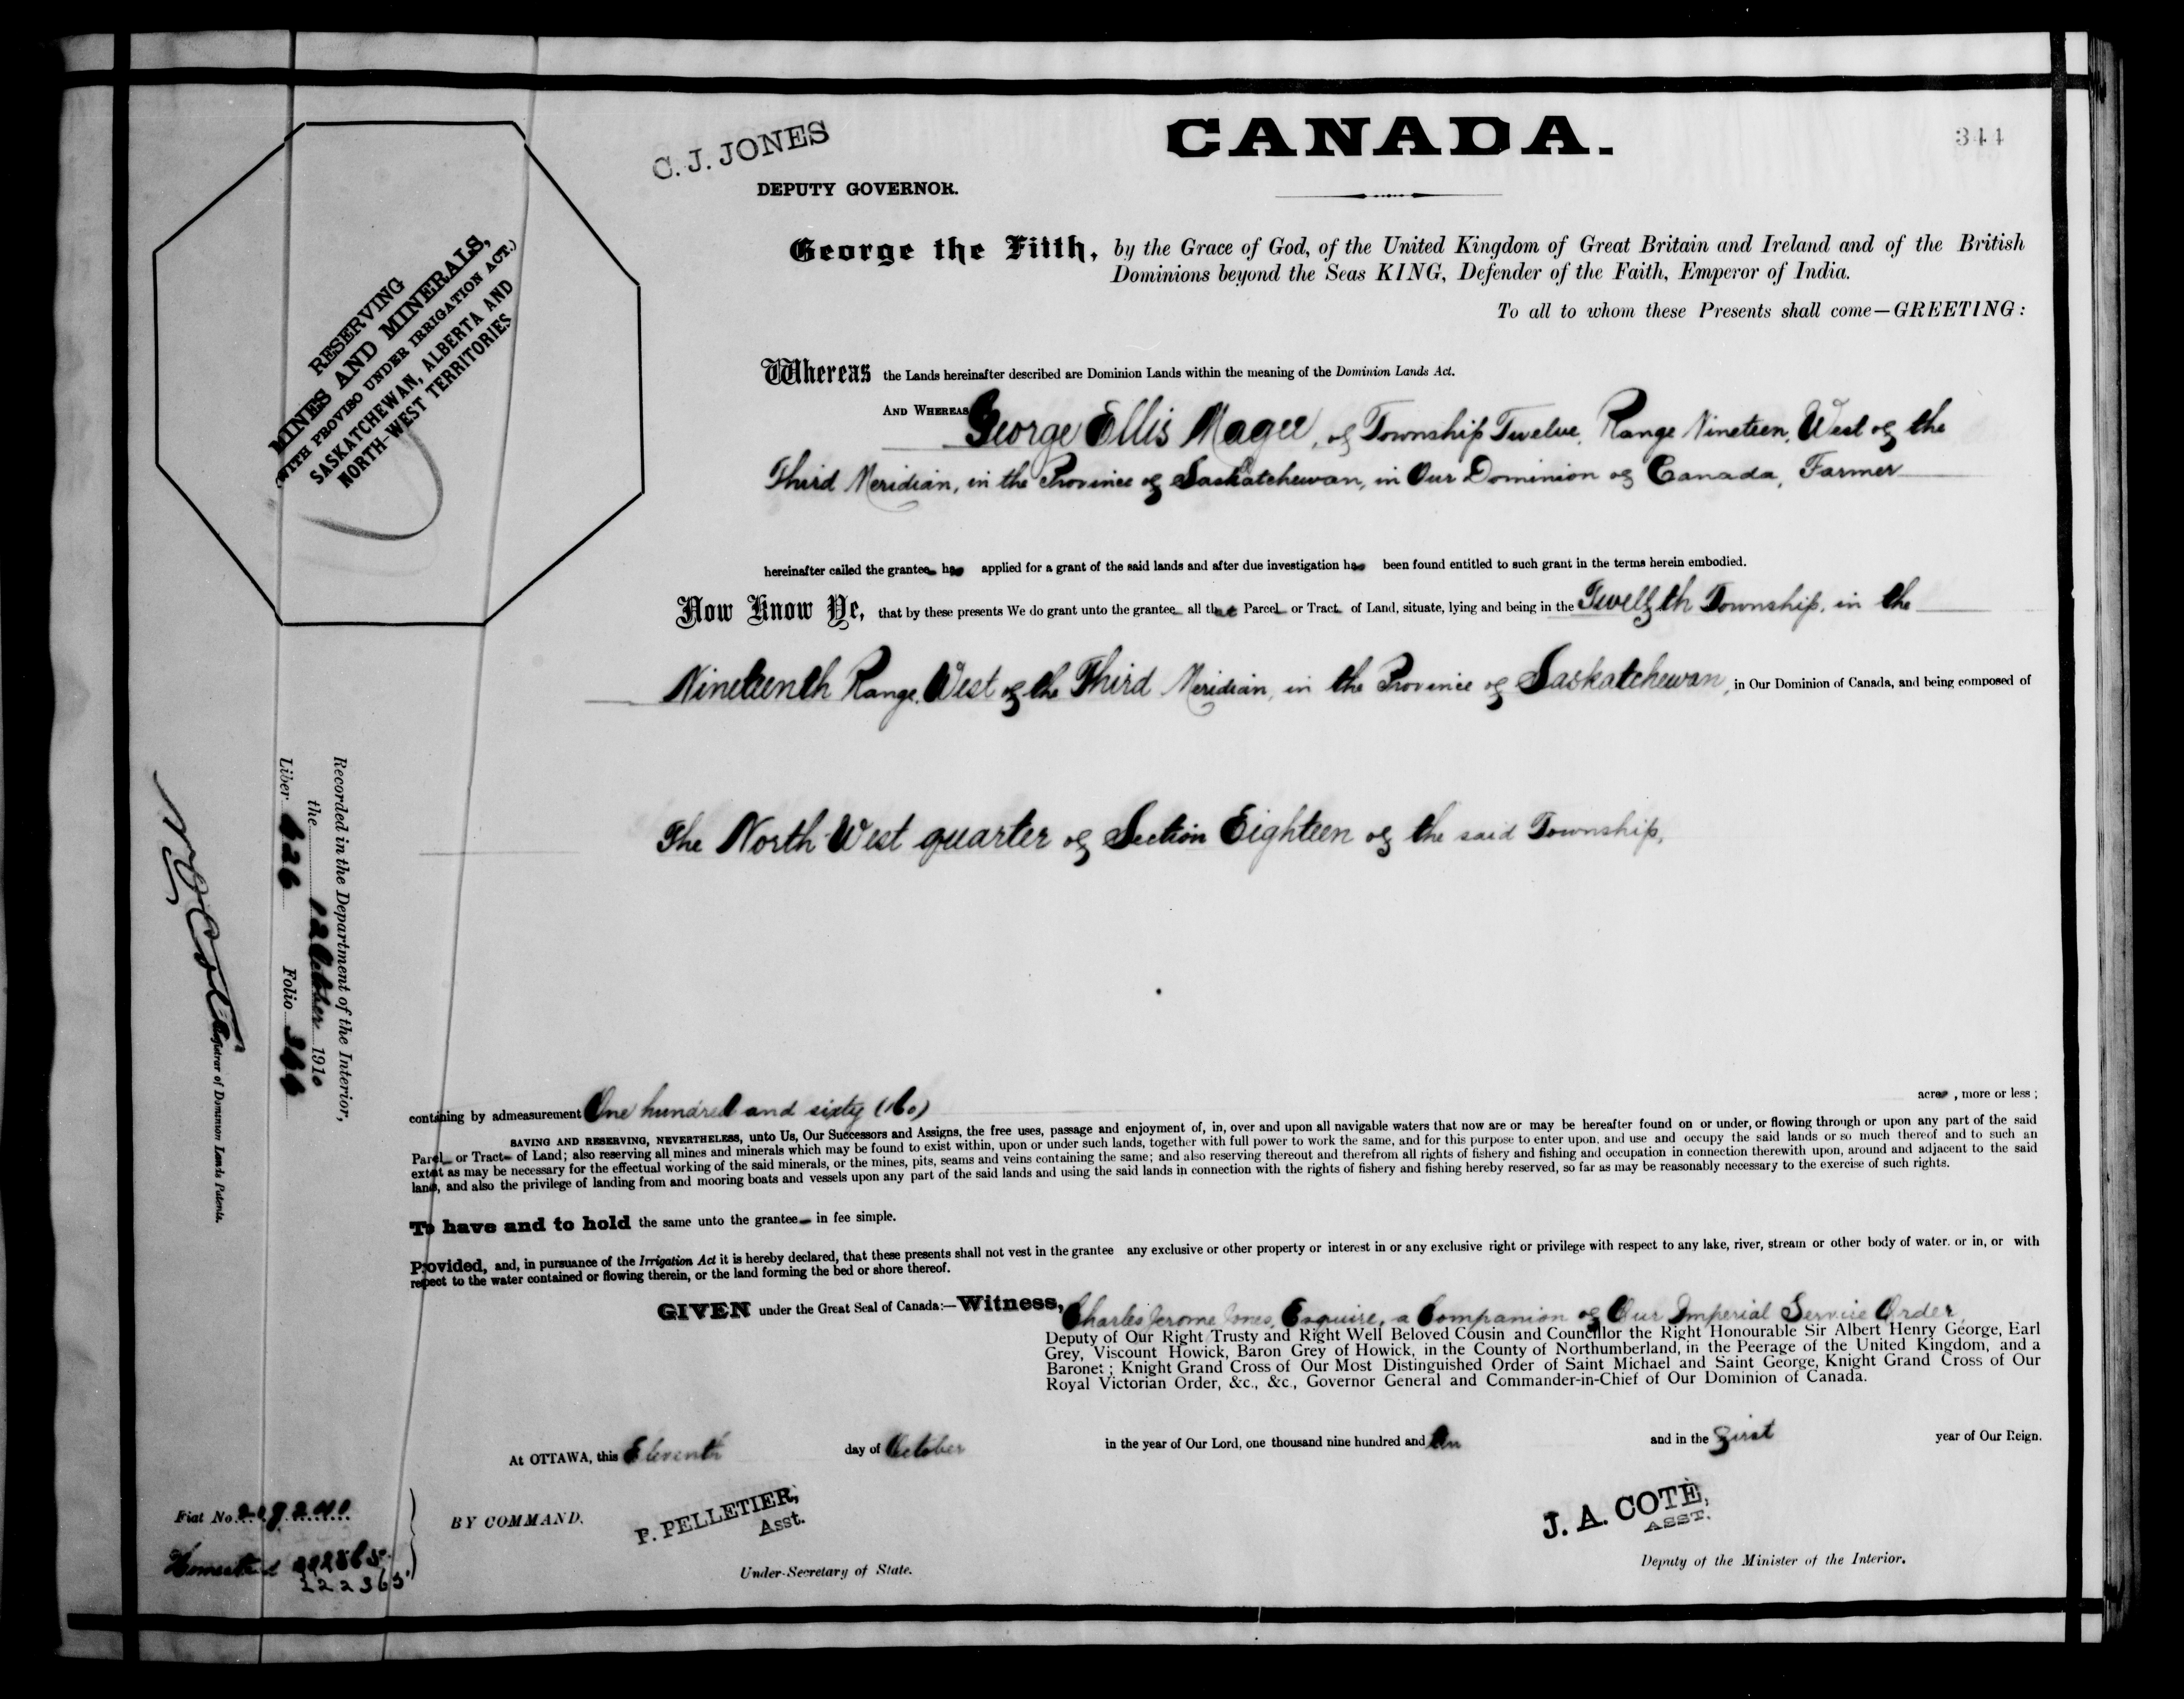 C. J. JONES
DEPUTY GOVERNOR.
CANADA.
344
RESERVING
MINES AND MINERALS,
(WITH PROVISO UNDER IRRIGATION ACT.)
SASKATCHEWAN, ALBERTA AND
NORTH-WEST TERRITORIES
George the Fifth, by the Grace of God, of the United Kingdom of Great Britain and Ireland and of the British
Dominions beyond the Seas KING, Defender of the Faith, Emperor of India.
To all to whom these Presents shall come—GREETING:
Whereas the Lands hereinafter described are Dominion Lands within the meaning of the Dominion Lands Act.
AND WHEREAS George Ellis Magee, of Township Twelve, Range Nineteen, West of the
Third Meridian, in the Province of Saskatchewan, in Our Dominion of Canada, Farmer
hereinafter called the grantee has applied for a grant of the said lands and after due investigation has been found entitled to such grant in the terms herein embodied.
Now Know Ye, that by these presents We do grant unto the grantee all that Parcel or Tract of Land, situate, lying and being in the Twelfth Township, in the
Nineteenth Range, West of the Third Meridian, in the Province of Saskatchewan, in Our Dominion of Canada, and being composed of
The North West quarter of Section Eighteen of the said Township,
Recorded in the Department of the Interior,
the 12 October 1910
Liber 626 Folio 344
Registrar of Dominion Lands Patents.
containing by admeasurement One hundred and sixty (160) acres, more or less;
SAVING AND RESERVING, NEVERTHELESS, unto Us, Our Successors and Assigns, the free uses, passage and enjoyment of, in, over and upon all navigable waters that now are or may be hereafter found on or under, or flowing through or upon any part of the said
Parcel or Tract of Land; also reserving all mines and minerals which may be found to exist within, upon or under such lands, together with full power to work the same, and for this purpose to enter upon, and use and occupy the said lands or so much thereof and to such an
extent as may be necessary for the effectual working of the said minerals, or the mines, pits, seams and veins containing the same; and also reserving thereout and therefrom all rights of fishery and fishing and occupation in connection therewith upon, around and adjacent to the said
lands, and also the privilege of landing from and mooring boats and vessels upon any part of the said lands and using the said lands in connection with the rights of fishery and fishing hereby reserved, so far as may be reasonably necessary to the exercise of such rights.
To have and to hold the same unto the grantee in fee simple.
Provided, and, in pursuance of the Irrigation Act it is hereby declared, that these presents shall not vest in the grantee any exclusive or other property or interest in or any exclusive right or privilege with respect to any lake, river, stream or other body of water. or in, or with
respect to the water contained or flowing therein, or the land forming the bed or shore thereof.
GIVEN under the Great Seal of Canada:—Witness, Charles Jerome Jones, Esquire, a Companion of Our Imperial Service Order,
Deputy of Our Right Trusty and Right Well Beloved Cousin and Councillor the Right Honourable Sir Albert Henry George, Earl
Grey, Viscount Howick, Baron Grey of Howick, in the County of Northumberland, in the Peerage of the United Kingdom, and a
Baronet; Knight Grand Cross of Our Most Distinguished Order of Saint Michael and Saint George, Knight Grand Cross of Our
Royal Victorian Order, &c., &c., Governor General and Commander-in-Chief of Our Dominion of Canada.
At OTTAWA, this Eleventh day of October in the year of Our Lord, one thousand nine hundred and ten and in the First year of Our Reign.
Fiat No.
BY COMMAND.
P. PELLETIER,
Asst.
Under-Secretary of State.
J. A. COTÉ,
ASST.
Deputy of the Minister of the Interior.
Homestead
222365